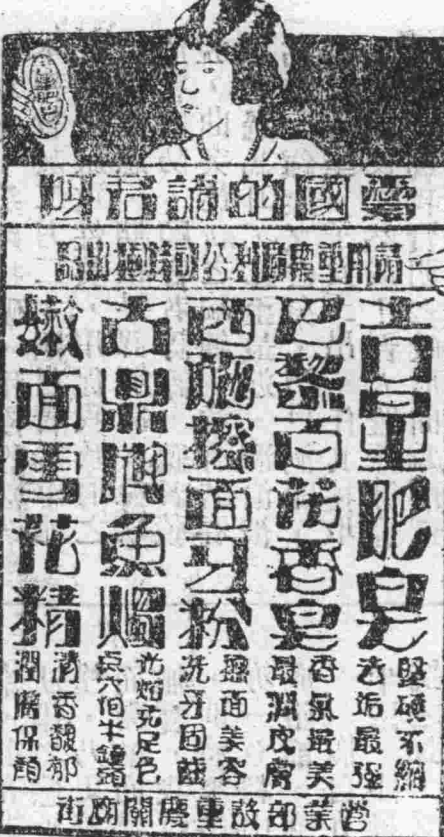 愛國的諸君呀
請用重慶利公司出品
吉星肥皂
堅硬不縮
去垢最強
巴黎百花香皂
香氣最美
最潤皮膚
西施擦面牙粉
擦面美容
洗牙固齒
古鼎牌魚燭
光焰充足色
点六個半鐘頭
嫩面雪花精
清香馥郁
潤膚保顏
營業部設重慶關廟街